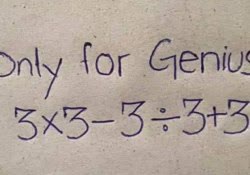 Only for Genius
3×3-3÷3+3